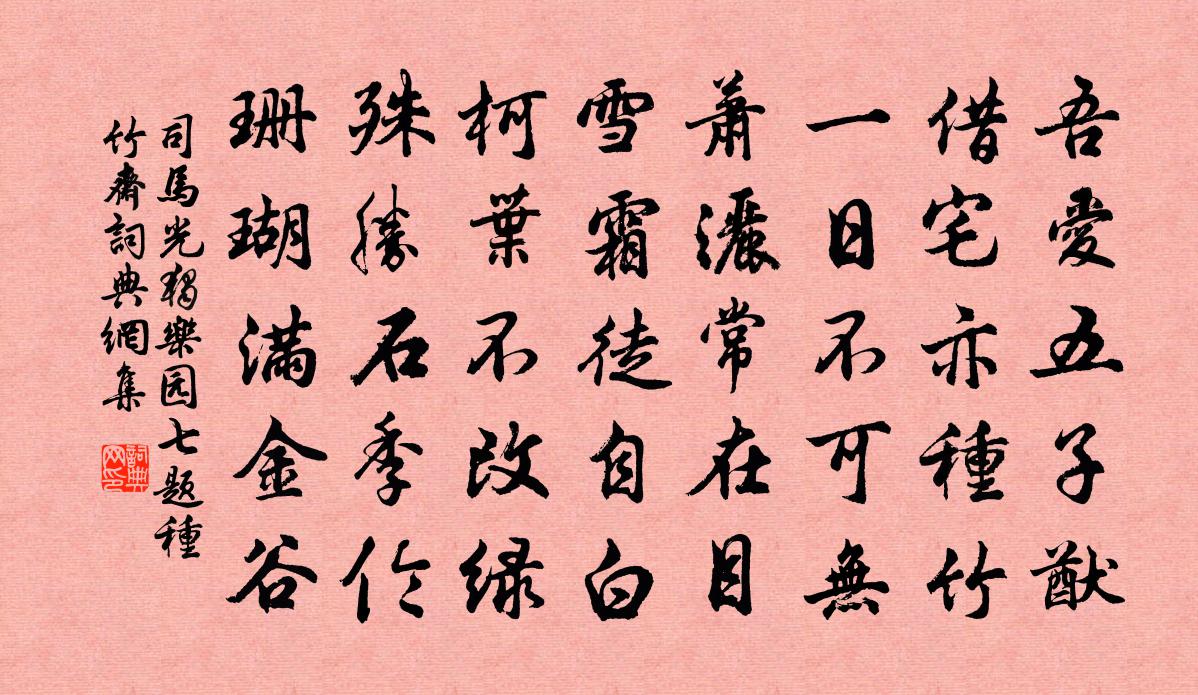 吾愛五子猷
借宅亦種竹
一日不可無
蕭灑常在目
雪霜徒自白
柯葉不改綠
殊勝石季伦
珊瑚滿金谷
司馬光獨樂园七題種
竹齋詞典網集
詞典
网印